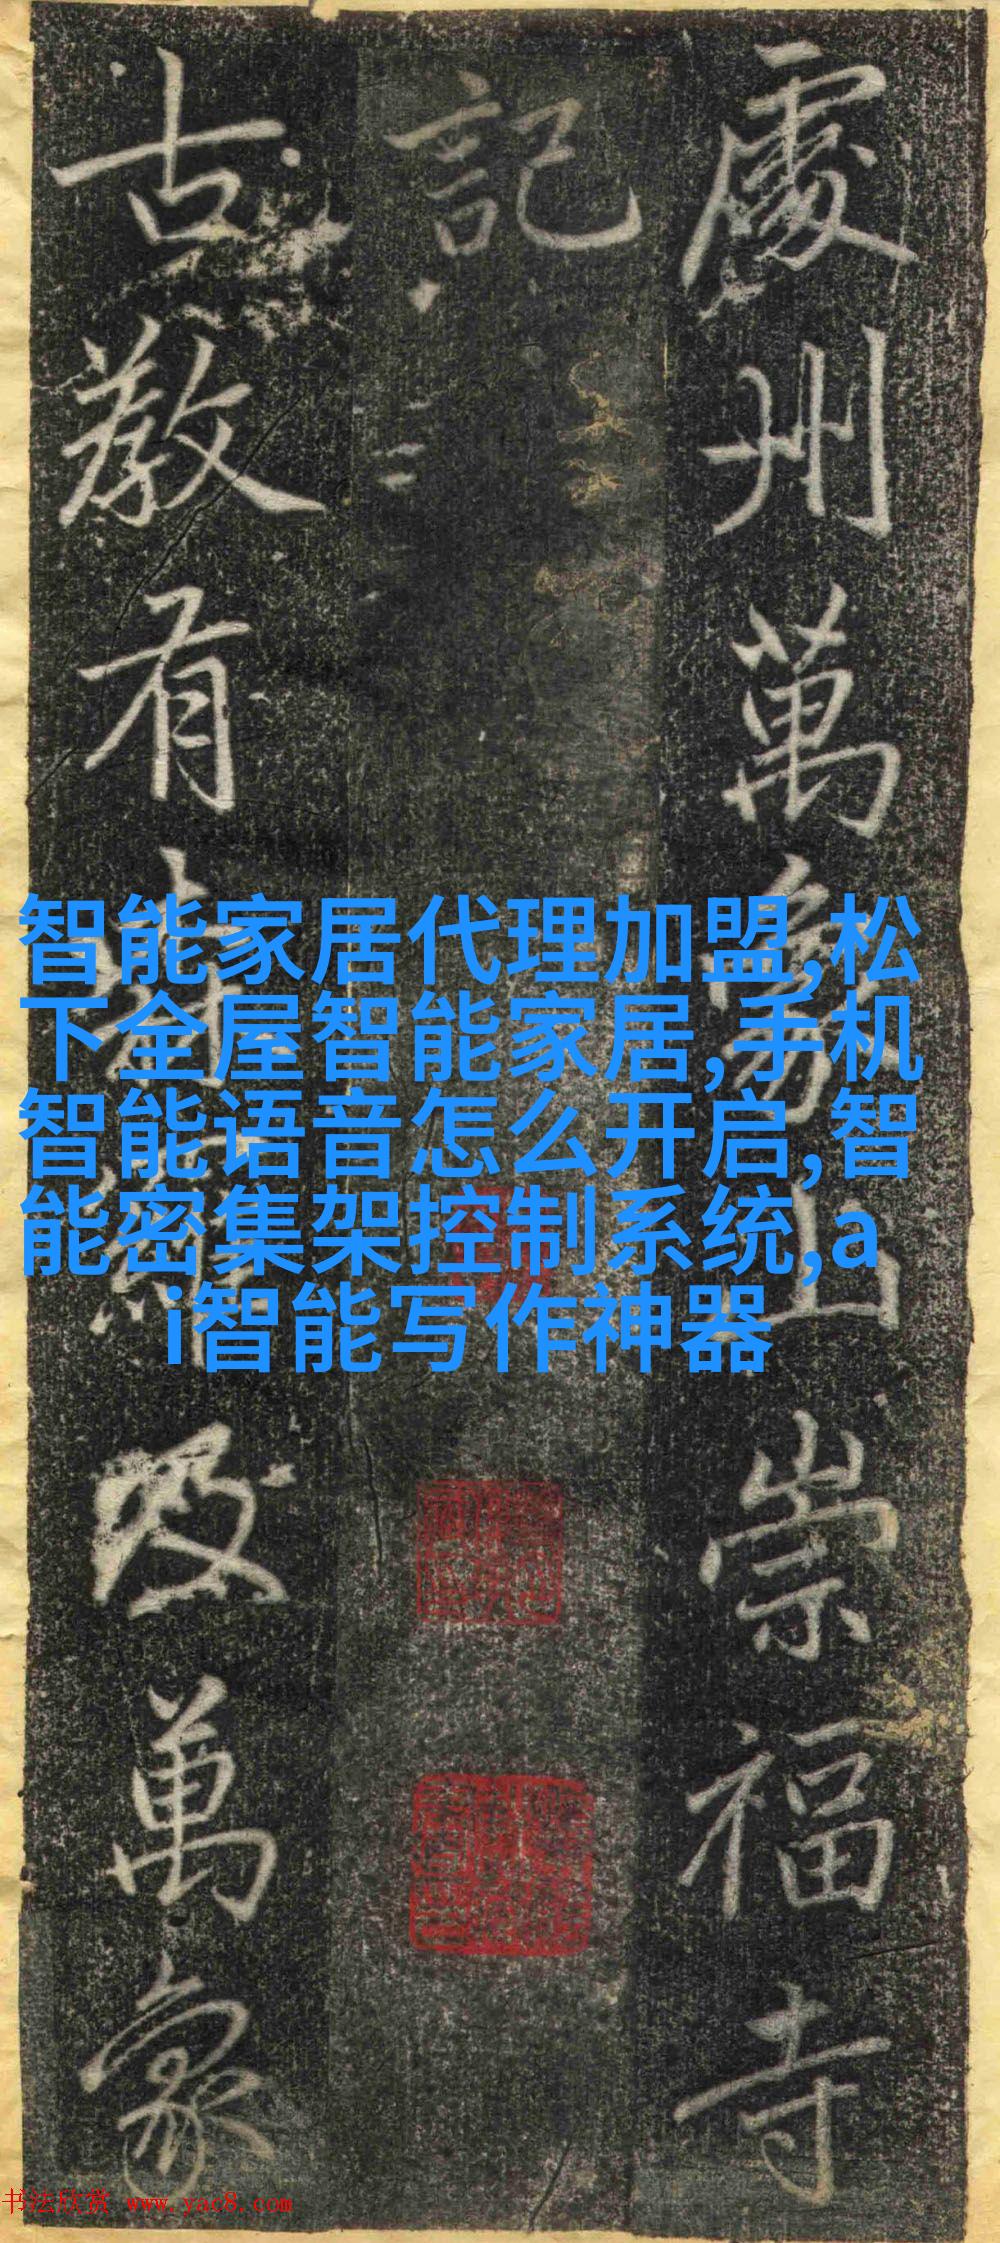 處州萬象山崇福寺
記
古教有
萬象
智能家居代理加盟,松
下全屋智能家居,手机
智能语音怎么开启,智
能密集架控制系统,a
i智能写作神器
书法欣赏 www.yac8.com